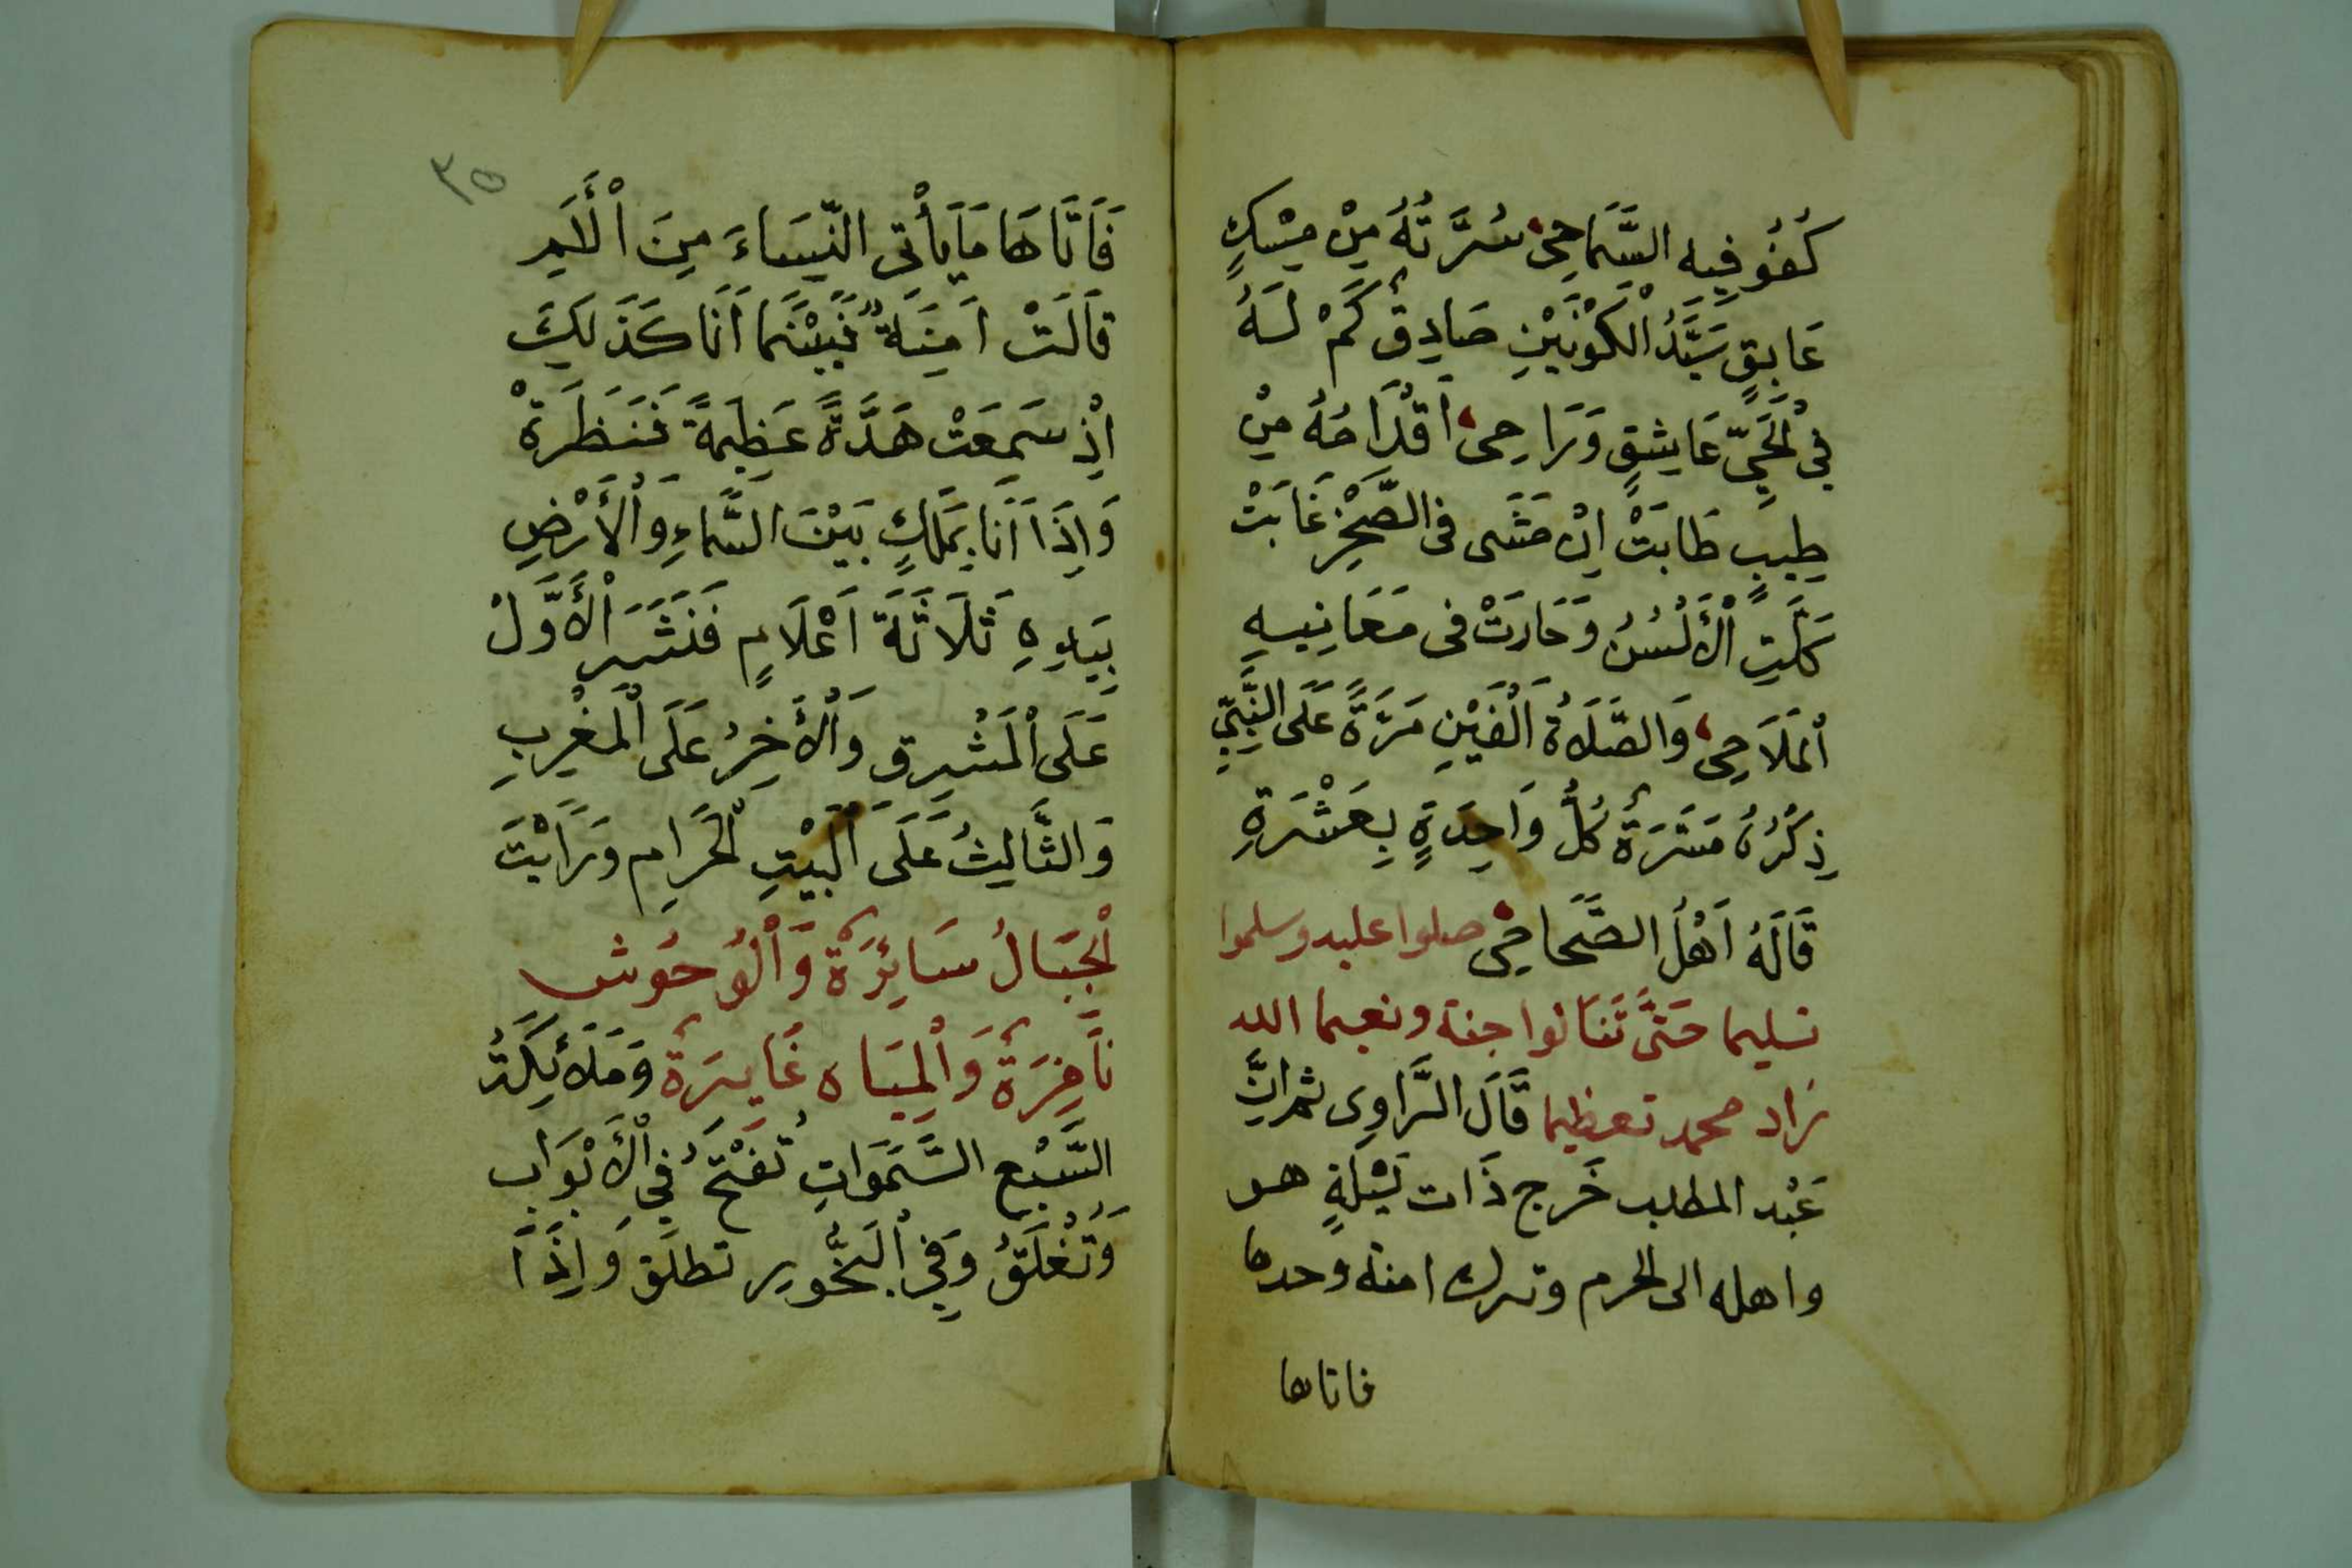 كُفُو فِيهِ السَّمَاحِى سُرَّتُهُ مِنْ مِسْكٍ
عَابِقٍ سَيِّدُ الْكَوْنَيْنِ صَادِقٌ كَمْ لَهُ
فِى الْحَيِّ عَاشِقٍ وَرَاحِى أَقْدَاحُهُ مِنْ
طِيبٍ طَابَتْ اِنْ مَشَى فى الصَّخْرِ غَابَتْ
كَلَّتِ الْأَلْسُنُ وَحَارَتْ فى مَعَانِيهِ
الْمَلَاحِى وَالصَّلَاةُ اَلْفَيْنِ مَرَّةً عَلَى النَّبِيِّ
ذِكْرُهُ مَسَرَّةٌ كُلُّ وَاحِدَةٍ بِعَشْرَةِ
قَالَهُ اَهْلُ الصَّحَاحِى صلوا عليه وسلموا
تسليما حَتَّى تَنَالوا جنة ونعيما الله
زاد محمد تعظيما قَالَ الرَّاوِى ثم اِنَّ
عَبْد المطلب خَرج ذَات لَيْلَةٍ هو
واهله الى الحرم وترك امنة وحدها
فاتاها
٣٥
فَاَتَاهَا مَا يَأْتِى النِّسَاءَ مِنَ الْأَلَمِ
قَالَتْ اَمِنَةٌ فَبَيْنَمَا اَنَا كَذَلِكَ
اِذْ سَمِعَتْ هَدَّةً عَظِيمَةً فَنَظَرَةْ
وَاِذَا اَنَا بِمَلَكٍ بَيْنَ السَّمَاءِ وَالْأَرْضِ
بِيَدِهِ ثَلَاثَةَ اَعْلَامٍ فَنَشَرَ الْأَوَّلْ
عَلَى الْمَشْرِق وَالْأَخِرُ عَلَى الْمَغْرِبِ
وَالثَّالِثُ عَلَى الْبَيْتِ الْحَرَامِ وَرَايْتَ
الْجِبَالُ سَائِرَةٌ وَالْوُحُوش
نَافِرَةٌ وَالْمِيَاه غَايِرَةٌ وَمَلَائِكَةُ
السَّبْعِ السَّمَوَاتِ تُفَتَّحُ فِى الْأَبْوَابِ
وَتُغْلَقُ وَفِى الْبُخُورِ تطلق وَاِذَا